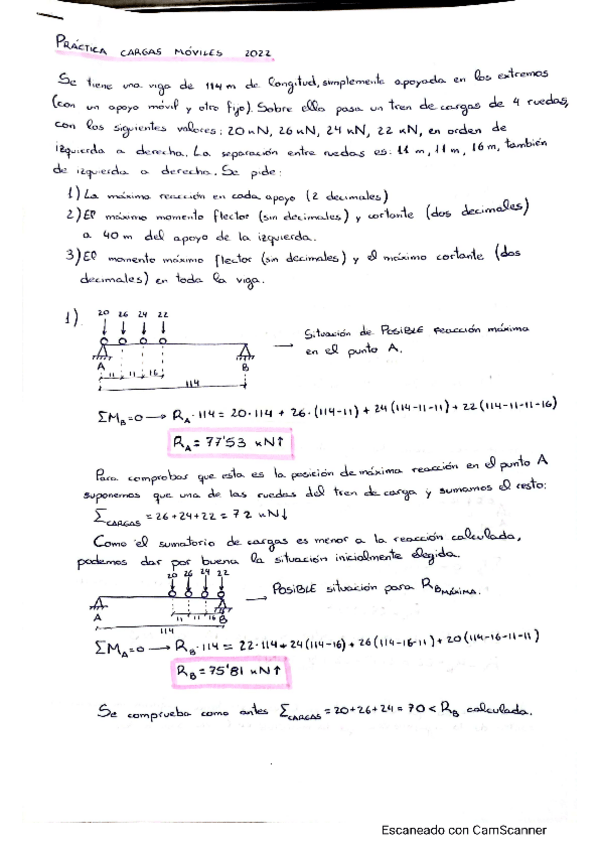 PRÁCTICA CARGAS MÓVILES 2022
Se tiene una viga de 114 m de longitud, simplemente apoyada en los extremos
(con un apoyo móvil y otro fijo). Sobre ella pasa un tren de cargas de 4 ruedas,
con los siguientes valores: 20 kN, 26 kN, 24 kN, 22 kN, en orden de
izquierda a derecha. La separación entre ruedas es: 11 m, 11 m, 16 m, también
de izquierda a derecha. Se pide:
1) La máxima reacción en cada apoyo (2 decimales)
2) El máximo momento flector (sin decimales) y cortante (dos decimales)
a 40 m del apoyo de la izquierda.
3) El momento máximo flector (sin decimales) y el máximo cortante (dos
decimales) en toda la viga.
1)
20 26 24 22
Situación de POSIBLE reacción máxima
en el punto A.
A B
11 11 16
114
ΣM_B=0 → R_A·114 = 20·114 + 26·(114-11) + 24(114-11-11) + 22(114-11-11-16)
R_A = 77'53 kN↑
Para comprobar que esta es la posición de máxima reacción en el punto A
suponemos que una de las ruedas del tren de carga y sumamos el resto:
Σ_CARGAS = 26+24+22 = 72 kN↓
Como el sumatorio de cargas es menor a la reacción calculada,
podemos dar por buena la situación inicialmente elegida.
20 26 24 22
POSIBLE situación para R_B MÁXIMA.
A 11 11 16 B
114
ΣM_A=0 → R_B·114 = 22·114 + 24(114-16) + 26(114-16-11) + 20(114-16-11-11)
R_B = 75'81 kN↑
Se comprueba como antes Σ_CARGAS = 20+26+24 = 70 < R_B calculada.
Escaneado con CamScanner